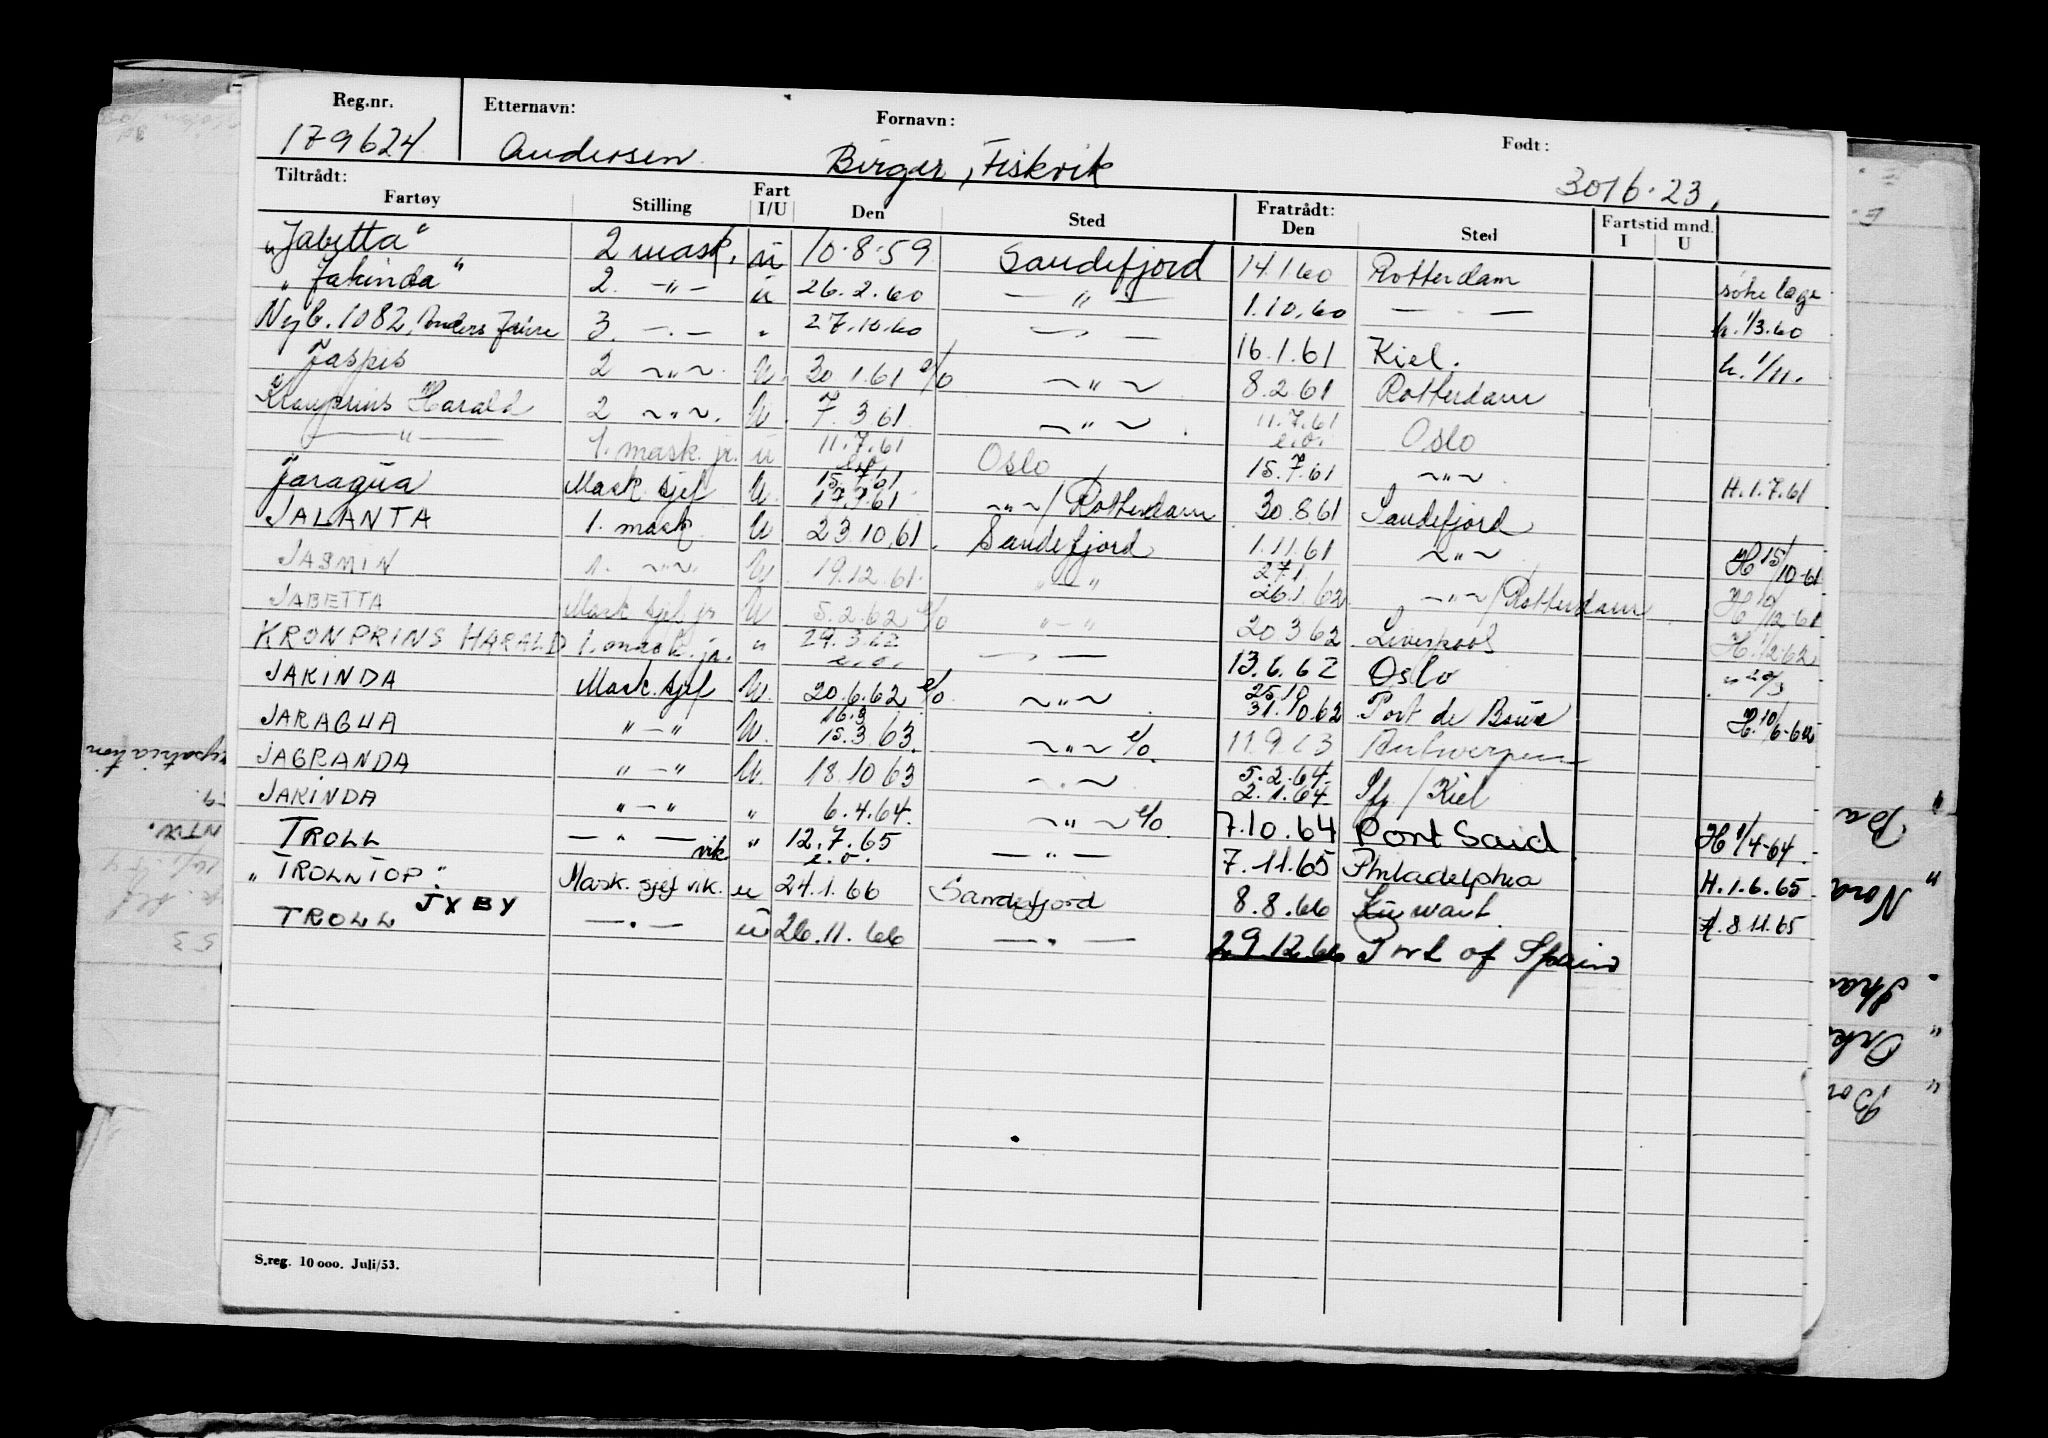 Reg.nr. Etternavn: Fornavn: Født:
179624 Andersen Birger, Fiskvik 30/6-23.
Tiltrådt: Fratrådt:
Fartøy Stilling Fart I/U Den Sted Den Sted Fartstid mnd. I U
"Jabetta" 2 mask. u 10-8-59 Sandefjord 14.1.60 Rotterdam søke lege
"Jakinda" 2. -"- u 26.2.60 — " — 1.10.60 — - — h. 1/3.60
Nyb. 1082, Anders Jahre 3. -.- " 27.10.60 — " — 16.1.61 Kiel. h. 1/11.
Jaspis 2 ~"~ U. 30.1.61 e/o ~"~ 8.2.61 Rotterdam
Kronprins Harald 2 ~"~. U. 7.3.61 ~"~. 11.7.61 e.o. Oslo
—"— 1. mask. jr. u 11.7.61 e.o. Oslo 15.7.61 ~"~ H.1.7.61
Jaragua Mask sjef U. 15.7.61 17.7.61 ~"~/Rotterdam 30.8.61 Sandefjord
JALANTA 1. mask. U 23.10.61. Sandefjord 1.11.61 ~"~ H 15/10-61
JASMIN 1. ~"~ U. 19.12.61. "-" 27.1. 26.1.62 ~"~/Rotterdam H 10/12-61
JABETTA Mask sjef jr U 5.2.62 e/o "-" 20.3.62 Liverpool H. 1/2-62
KRONPRINS HARALD 1. mask. jr. " 29.3.62 e.o. — " — 13.6.62 Oslo " 20/3
JAKINDA Mask. sjef U. 20.6.62 e/o ~"~ 25.10 31.10.62 Port de Bouc H. 10/6-62
JARAGUA "-" U. 16.3 15.3.63. ~"~ e/o. 11.9.63 Antwerpen
JAGRANDA "-" U. 18.10.63 ~.~ 5.2.64. 2.1.64 Sfj/Kiel
JAKINDA "-" " 6.4.64. ~"~ e/o. 7.10.64 Port Said H 1/4-64.
TROLL — " — vik. " 12.7.65 e.o. — " — 7.11.65 Philadelphia H.1.6.65
"TROLLTOP" Mask. sjef vik. u 24.1.66 Sandefjord 8.8.66 Kuwait. H. 8.11.65
JXBY
TROLL —.— u 26.11.66 —.— 29.12.66 Port of Spain
S.reg. 10 000. Juli/53.